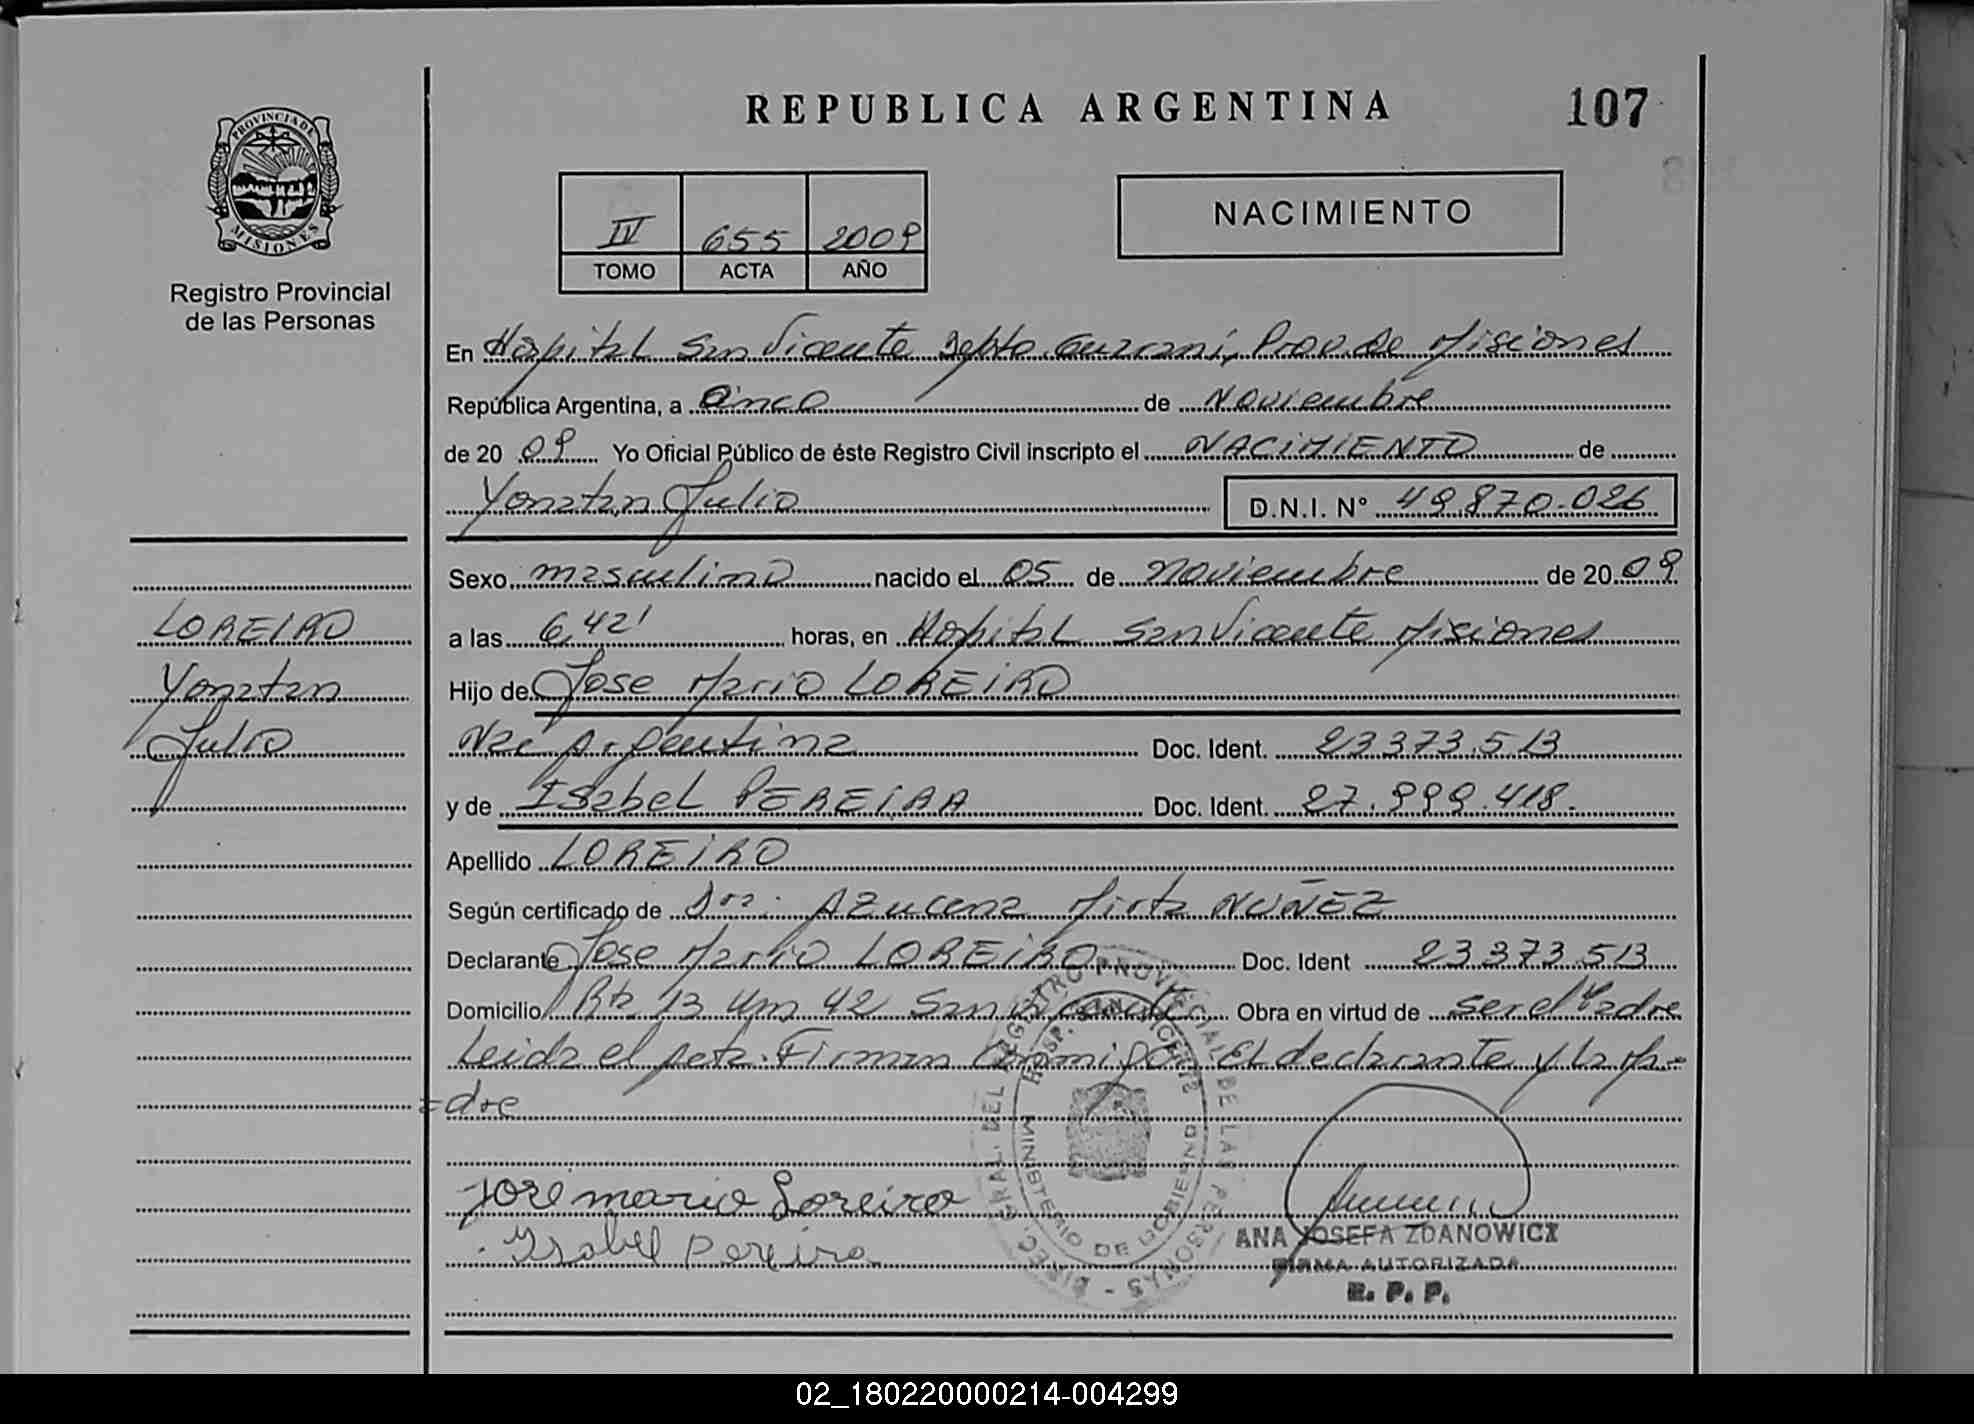 REPUBLICA ARGENTINA
107
PROVINCIA DE
MISIONES
Registro Provincial
de las Personas
IV 655 2009
TOMO ACTA AÑO
NACIMIENTO
En Hospital San Vicente Depto. Guarani, Prov de Misiones
República Argentina, a Cinco de Noviembre
de 2009 Yo Oficial Público de éste Registro Civil inscripto el NACIMIENTO de
Yonatan Julio D.N.I. Nº 49.870.026
Sexo masculino nacido el 05 de noviembre de 2009
LOREIRO
a las 6,42' horas, en Hospital San Vicente Misiones
Yonatan
Hijo de Jose Mario LOREIRO
Julio
Nac Argentina Doc. Ident. 23373.513
y de Isabel PEREIRA Doc. Ident. 27.999.418.
Apellido LOREIRO
Según certificado de Dra. Azucena Mirta NUÑEZ
Declarante Jose Mario LOREIRO Doc. Ident 23373513
Domicilio Rta 13 Km 42 San Vicente Obra en virtud de ser el Padre
Leida el Acta. Firman Conmigo El declarante y la Ma-
=dre
Jose mario Loreiro
Ysabel Pereira
DIREC. GRAL. DEL REGISTRO PROVINCIAL DE LAS PERSONAS -
HOSP. SAN VICENTE
MINISTERIO DE GOBIERNO
ANA JOSEFA ZDANOWICZ
FIRMA AUTORIZADA
R. P. P.
02_180220000214-004299